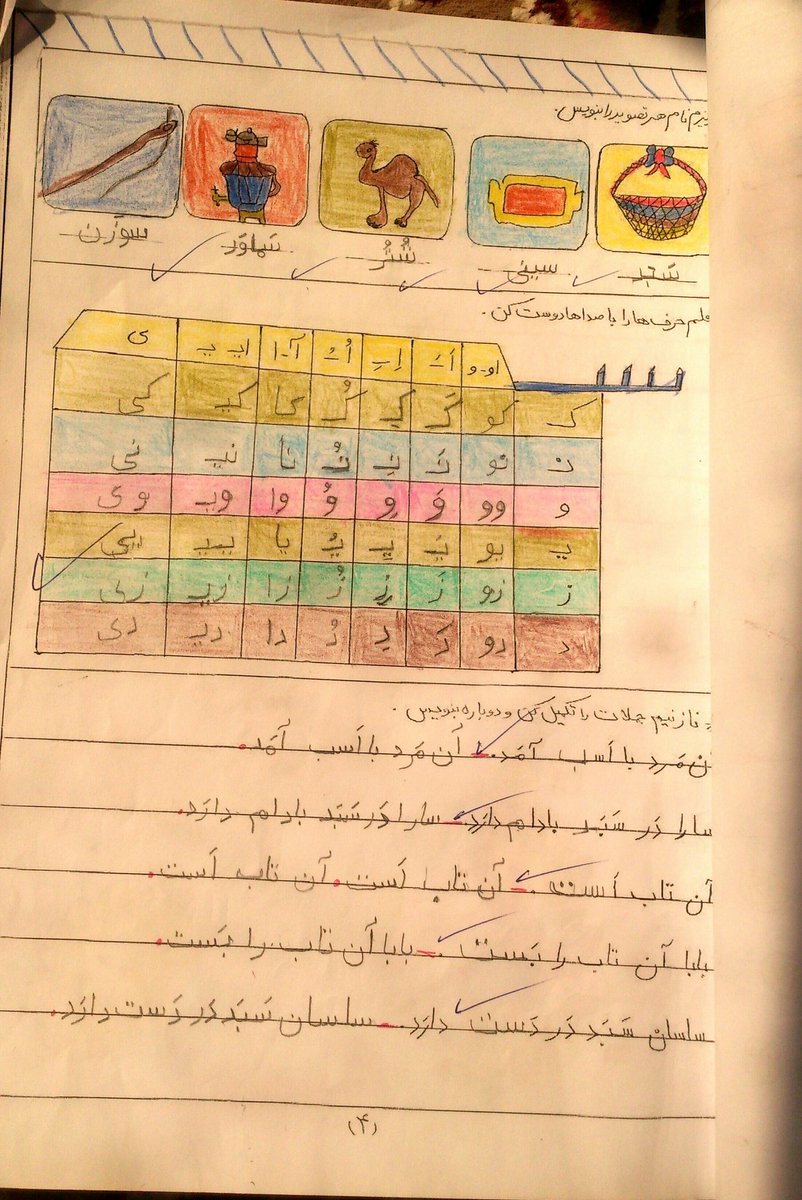 نام هر تصویر را بنویس.
سَبَد سینی شُتُر سَماوَر سوزَن
حرف ها را با صداها دوست کن.
او-و اَ-َ اِ-ِ اُ-ُ آ-ا ایـ یـ ی
کـ کو کَـ کِـ کُـ کا کیـ کی
نـ نو نَـ نِـ نُـ نا نیـ نی
و وو وَ وِ وُ وا ویـ وی
یـ یو یَـ یِـ یُـ یا ییـ یی
ز زو زَ زِ زُ زا زیـ زی
د دو دَ دِ دُ دا دیـ دی
نازنیم جملات را تکمیل کن و دوباره بنویس.
مَرد با اَسب آمَد. - آن مَرد با اَسب آمَد.
سارا دَر سَبَد بادام دارَد. - سارا دَر سَبَد بادام دارَد.
آن تاب اَست. - آن تاب اَست. آن تاب اَست.
بابا آن تاب را بَست. - بابا آن تاب را بَست.
ساسان سَبَد دَر دَست دارَد. - ساسان سَبَد دَر دَست دارَد.
(۴)